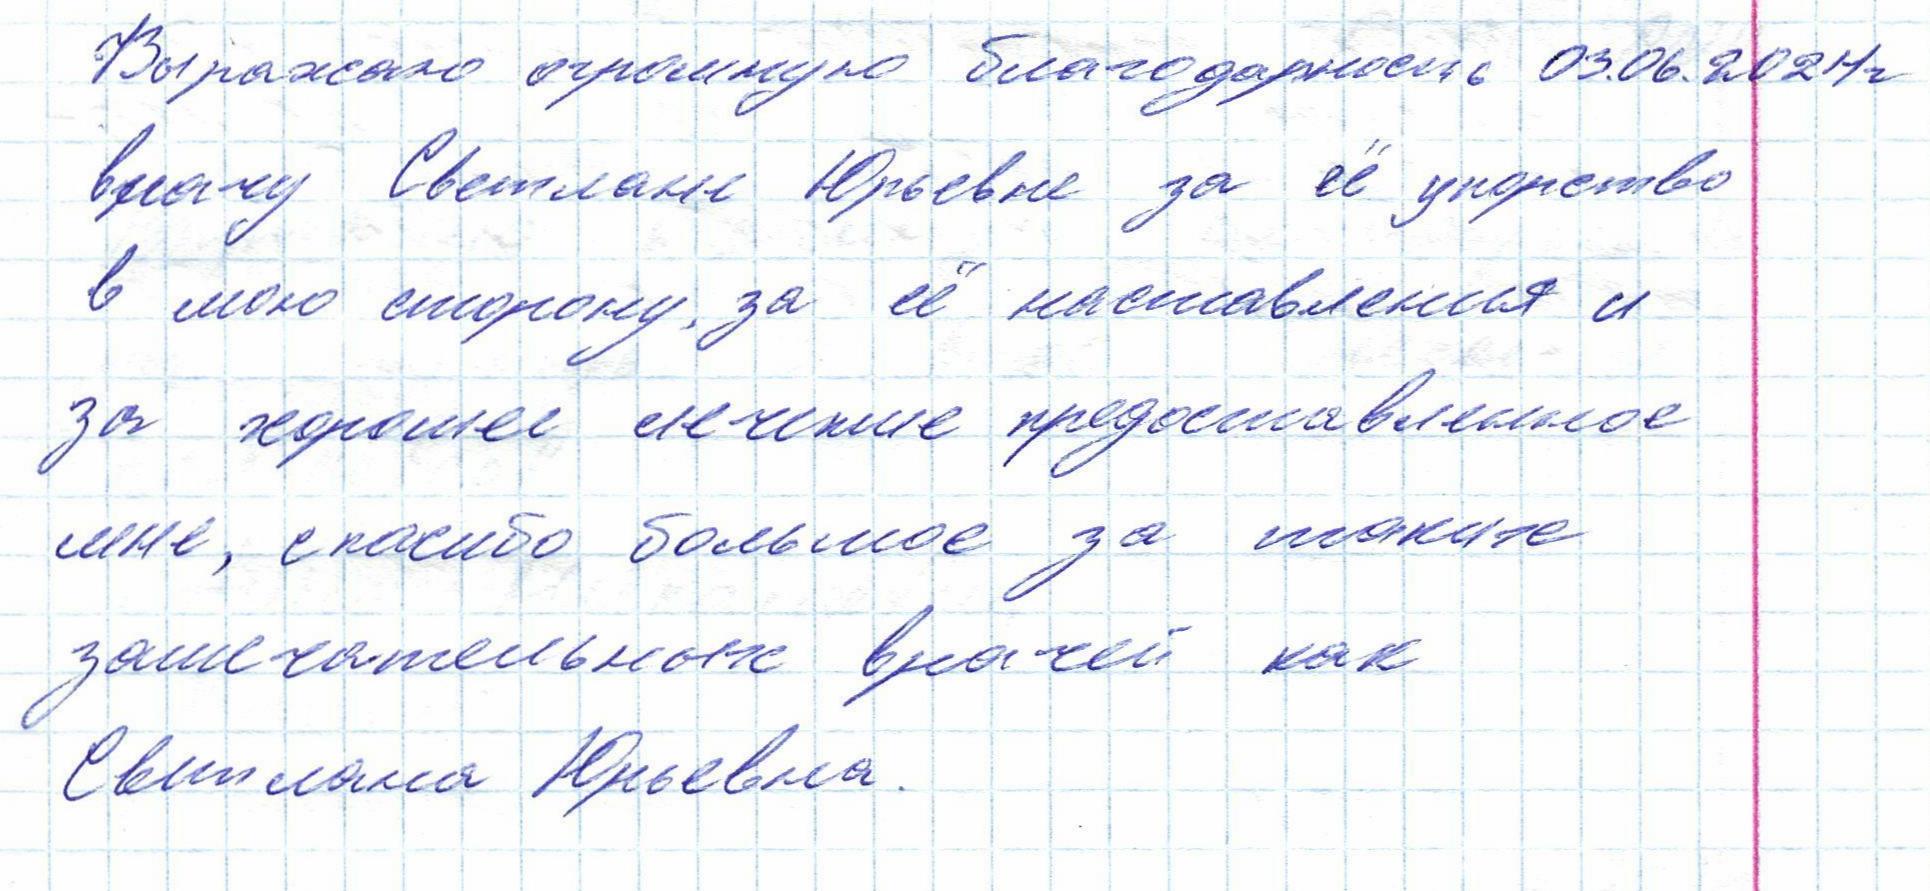 Выражаю огромную благодарность 03.06.2024г
врачу Светлане Юрьевне за её упорство
в мою сторону, за её наставления и
за хорошее лечение предоставленное
мне, спасибо большое за таких
замечательных врачей как
Светлана Юрьевна.